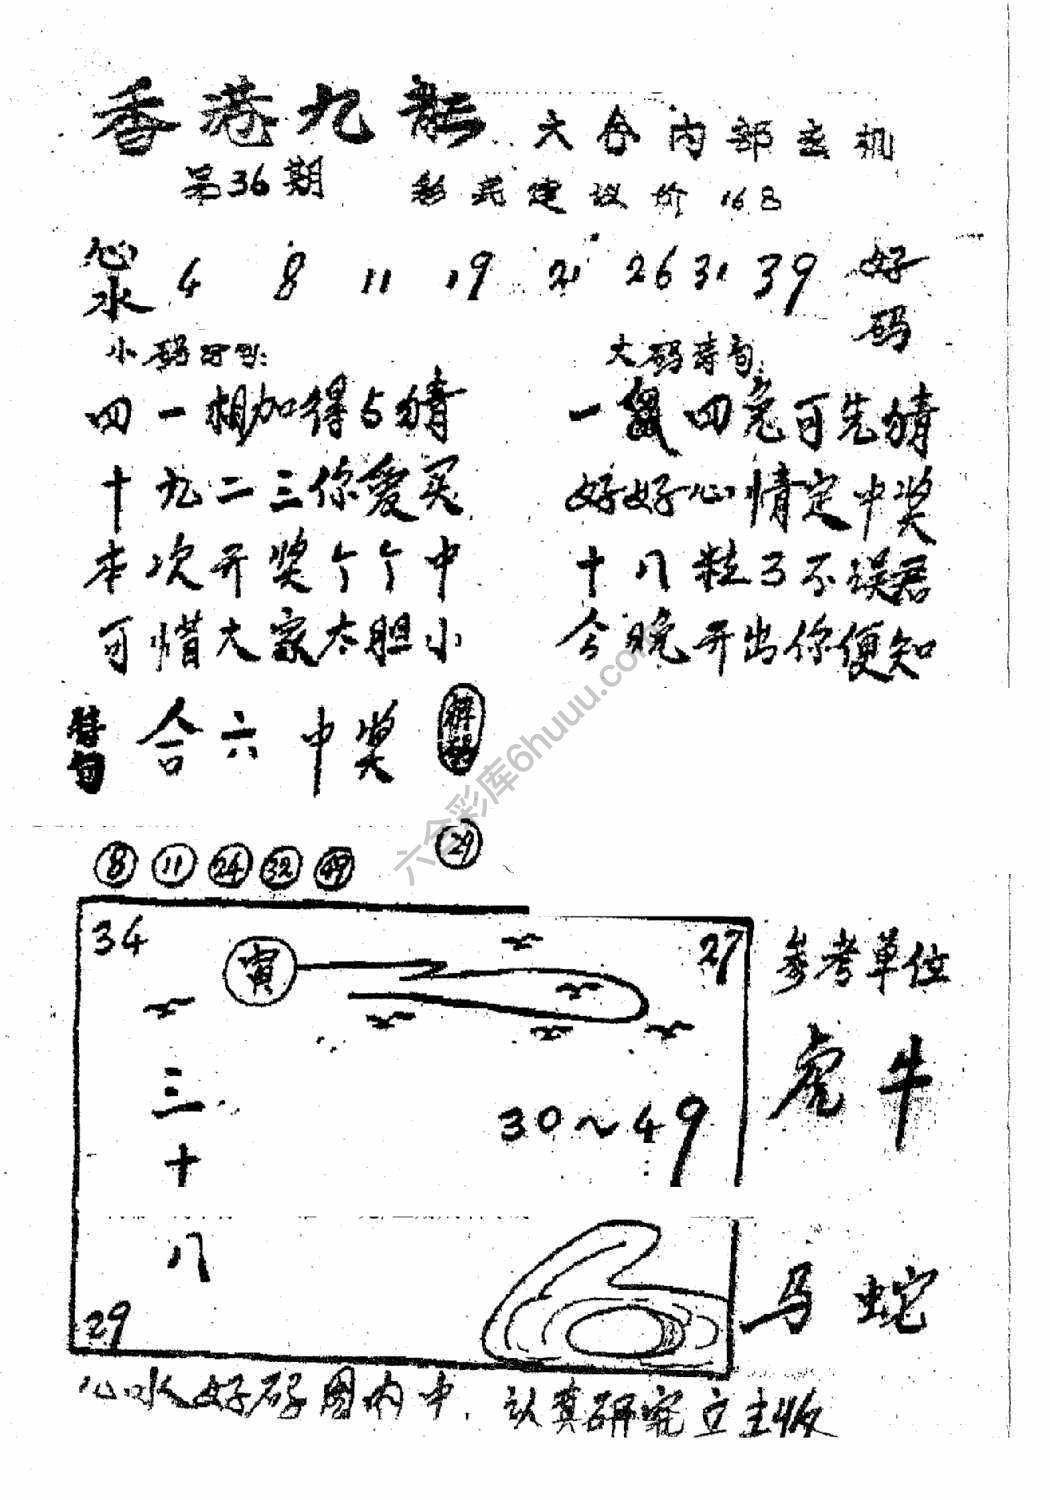 香港九龍 六合内部玄机
第36期 彩民建议价 168
心水 4 8 11 19 21 26 31 39 好码
小码
大码诗句:
四一相加得5猜
十九二三你爱买
本次开奖个个中
可惜大家太胆小
一鼠四兔可先猜
好好心情定中奖
十八粒3不误君
今晚开出你便知
诗句 合六中奖
8 11 24 32 49 29
34 寅 27
三十八
30~49
29
参考单位
虎牛
马蛇
心水好码图内中.认真研究立主收
六合彩库6huuu.com